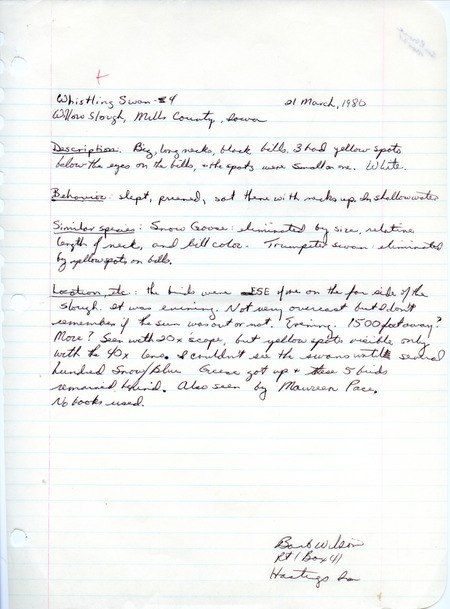 Whistling Swan - 4 21 March, 1980
Willow Slough, Mills County, Iowa
Description: Big, long necks, black bills. 3 had yellow spots
below the eyes on the bills, & the spots were small on one. White.
Behavior: slept, preened, sat there with necks up. In shallow water
Similar species: Snow Goose: eliminated by size, relative
length of neck, and bill color. Trumpeter swan: eliminated
by yellow spots on bills.
Location, etc: the birds were ESE of me on the far side of the
slough. It was evening. Not very overcast but I don't
remember if the sun was out or not. Evening. 1500 feet away?
More? Seen with 20x scope, but yellow spots visible only
with the 40x lens. I couldn't see the swans until several
hundred Snow/Blue Geese got up & these 5 birds
remained behind. Also seen by Maureen Pace.
No books used.
Barb Wilson
Rt 1 Box 41
Hastings Ia